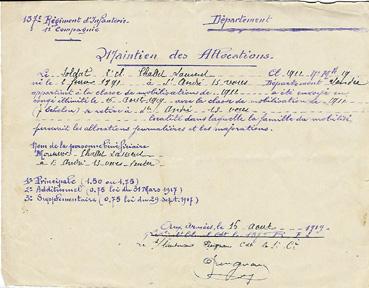 137e Régiment d'Infanterie Département
1e Compagnie
Maintien des Allocations.
Le Soldat Challet Laurent Cl 1911 Nº Mle 19
né le 2 1891 à St André 13 voies Département Vendée
appartient à la classe de mobilisation de 1911 a été envoyé en
congé illimité le 15 août 1919 avec la classe de mobilisation de 1911
(échelon) a retiré à St André 13 voies
localité dans laquelle la famille du mobilisé
percevait les allocations journalières et les majorations.
Nom de la personne bénéficiaire
Monsieur Challet Laurent
à St André 13 voies Vendée
1º Principale (1.50 ou 1.75)
2º Additionnel (0.75 loi du 31 Mars 1917)
3º Supplémentaire (0.75 loi du 29 Sept. 1917)
Aux Armées, le 15 août 1919
Le Lieutenant Cdt la 1e Cie